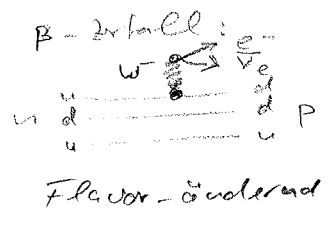 β-Zerfall:
W⁻ e⁻
ν̅e
u d
n d d p
u u
Flavor-ändernd